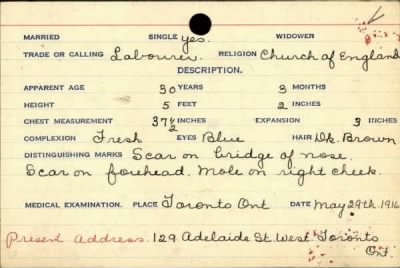 MARRIED SINGLE yes. WIDOWER
TRADE OR CALLING Labourer. RELIGION Church of England
DESCRIPTION.
APPARENT AGE 30 YEARS 3 MONTHS
HEIGHT 5 FEET 2 INCHES
CHEST MEASUREMENT 37½ EXPANSION 3 INCHES
COMPLEXION Fresh EYES Blue HAIR Dk. Brown
DISTINGUISHING MARKS Scar on bridge of nose.
Scar on forehead. Mole on right cheek.
MEDICAL EXAMINATION. PLACE Toronto Ont DATE May 29th. 1916
Present Address. 129 Adelaide St. West. Toronto
Ont.